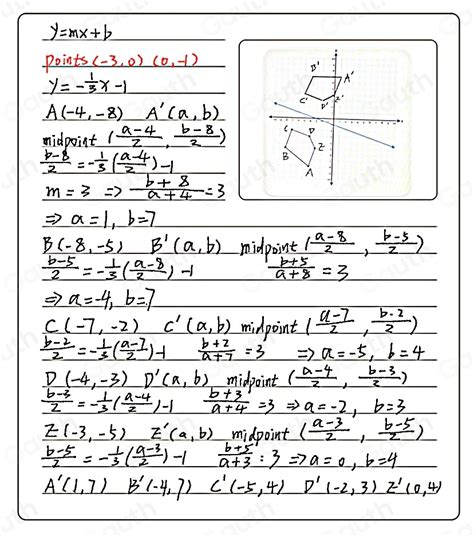 y=mx+b
points(-3,0) (0,-1)
y=-1/3x-1
A(-4,-8) A'(a,b)
midpoint (a-4/2, b-8/2)
b-8/2=-1/3(a-4/2)-1
m=3 => b+8/a+4=3
=> a=1, b=7
B(-8,-5) B'(a,b) midpoint (a-8/2, b-5/2)
b-5/2=-1/3(a-8/2)-1 b+5/a+8=3
=> a=-4, b=7
C(-7,-2) C'(a,b) midpoint (a-7/2, b-2/2)
b-2/2=-1/3(a-7/2)-1 b+2/a+7=3 => a=-5, b=4
D(-4,-3) D'(a,b) midpoint (a-4/2, b-3/2)
b-3/2=-1/3(a-4/2)-1 b+3/a+4=3 => a=-2, b=3
Z(-3,-5) Z'(a,b) midpoint (a-3/2, b-5/2)
b-5/2=-1/3(a-3/2)-1 b+5/a+3:3 => a=0, b=4
A'(1,7) B'(-4,7) C'(-5,4) D'(-2,3) Z'(0,4)
B' A'
C' D' Z'
C D
B Z
A
Gauth